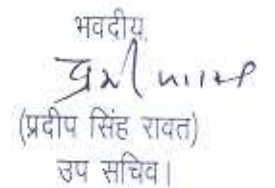 भवदीय,
(प्रदीप सिंह रावत)
उप सचिव।